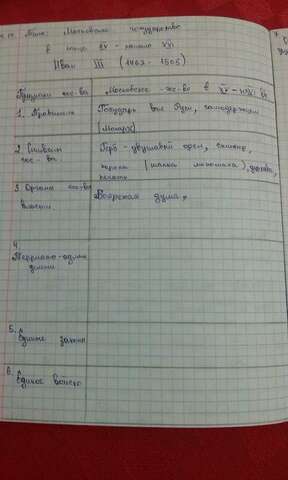 Тема: Московское государство
в конце XV - начале XVI
Иван III (1462 - 1505)
Признаки гос-ва
Московское гос-во в XV - XVI вв
1. Правитель
Государь всея Руси, самодержец
(Монарх)
2. Символы
гос-ва
Герб - двуглавый орел, скипетр,
корона (шапка мономаха), держава,
печать
3. Органы гос-ва
власти
Боярская дума,
4.
5.
Единые законы
6.
Единое войско